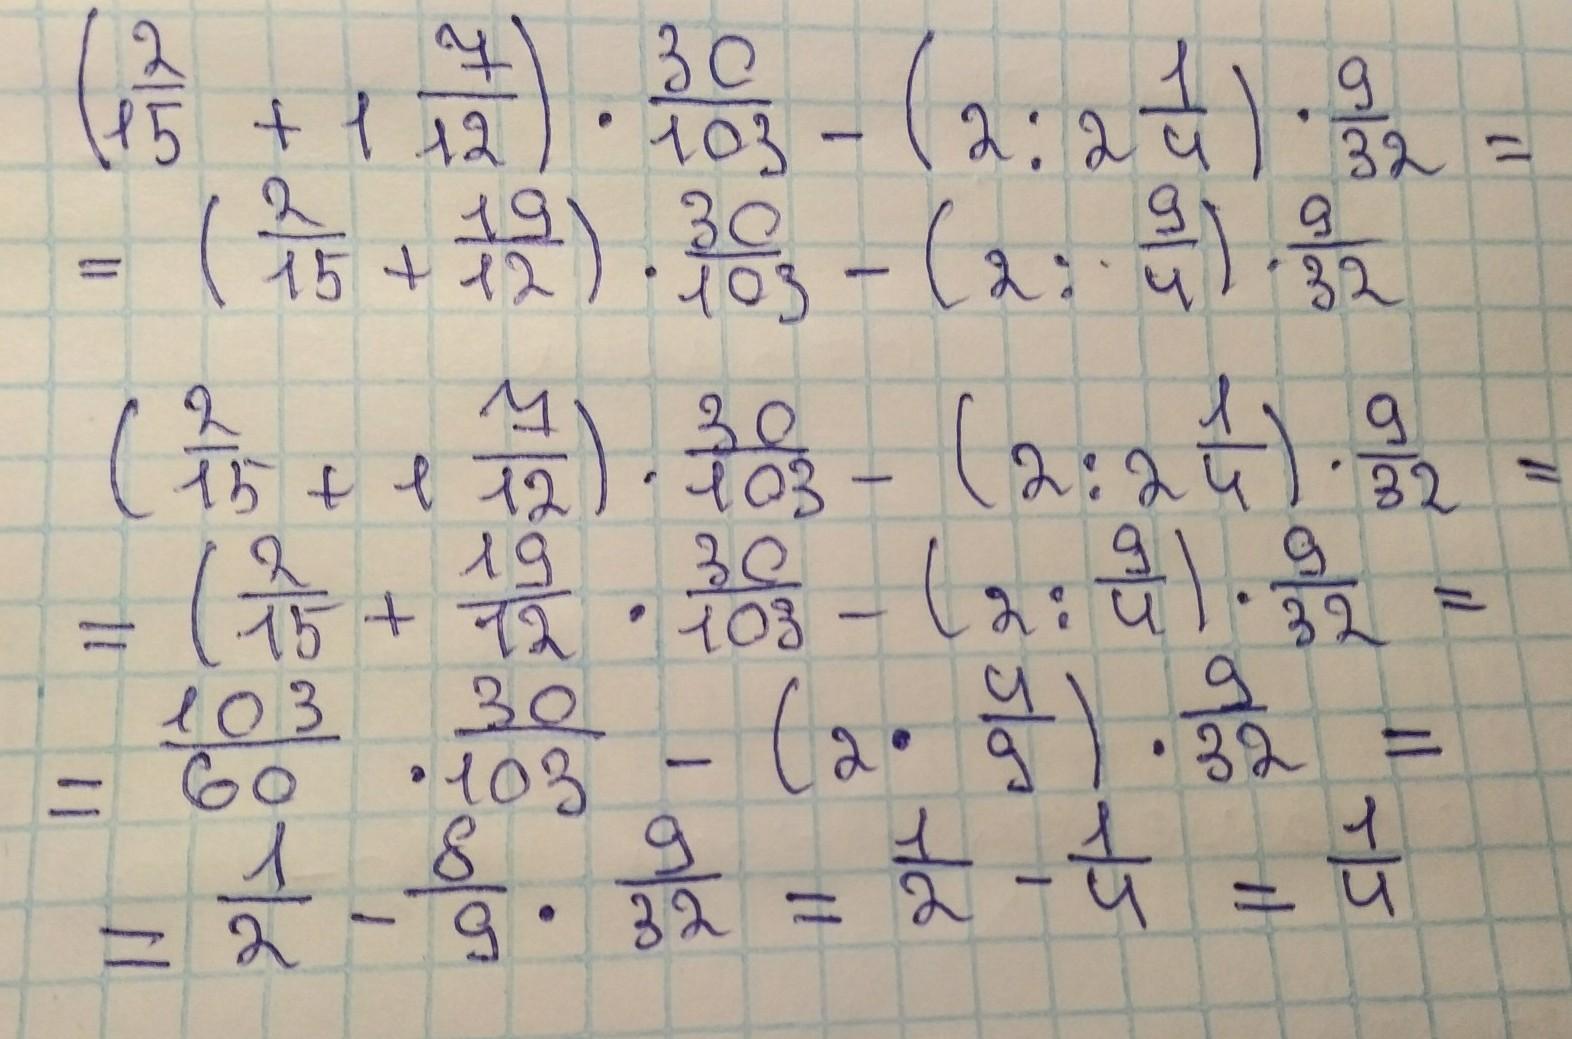 (2/15 + 1 7/12) · 30/103 - (2 : 2 1/4) · 9/32 =
= (2/15 + 19/12) · 30/103 - (2 : 9/4) · 9/32
(2/15 + 1 7/12) · 30/103 - (2 : 2 1/4) · 9/32 =
= (2/15 + 19/12 · 30/103 - (2 : 9/4) · 9/32 =
= 103/60 · 30/103 - (2 · 4/9) · 9/32 =
= 1/2 - 8/9 · 9/32 = 1/2 - 1/4 = 1/4